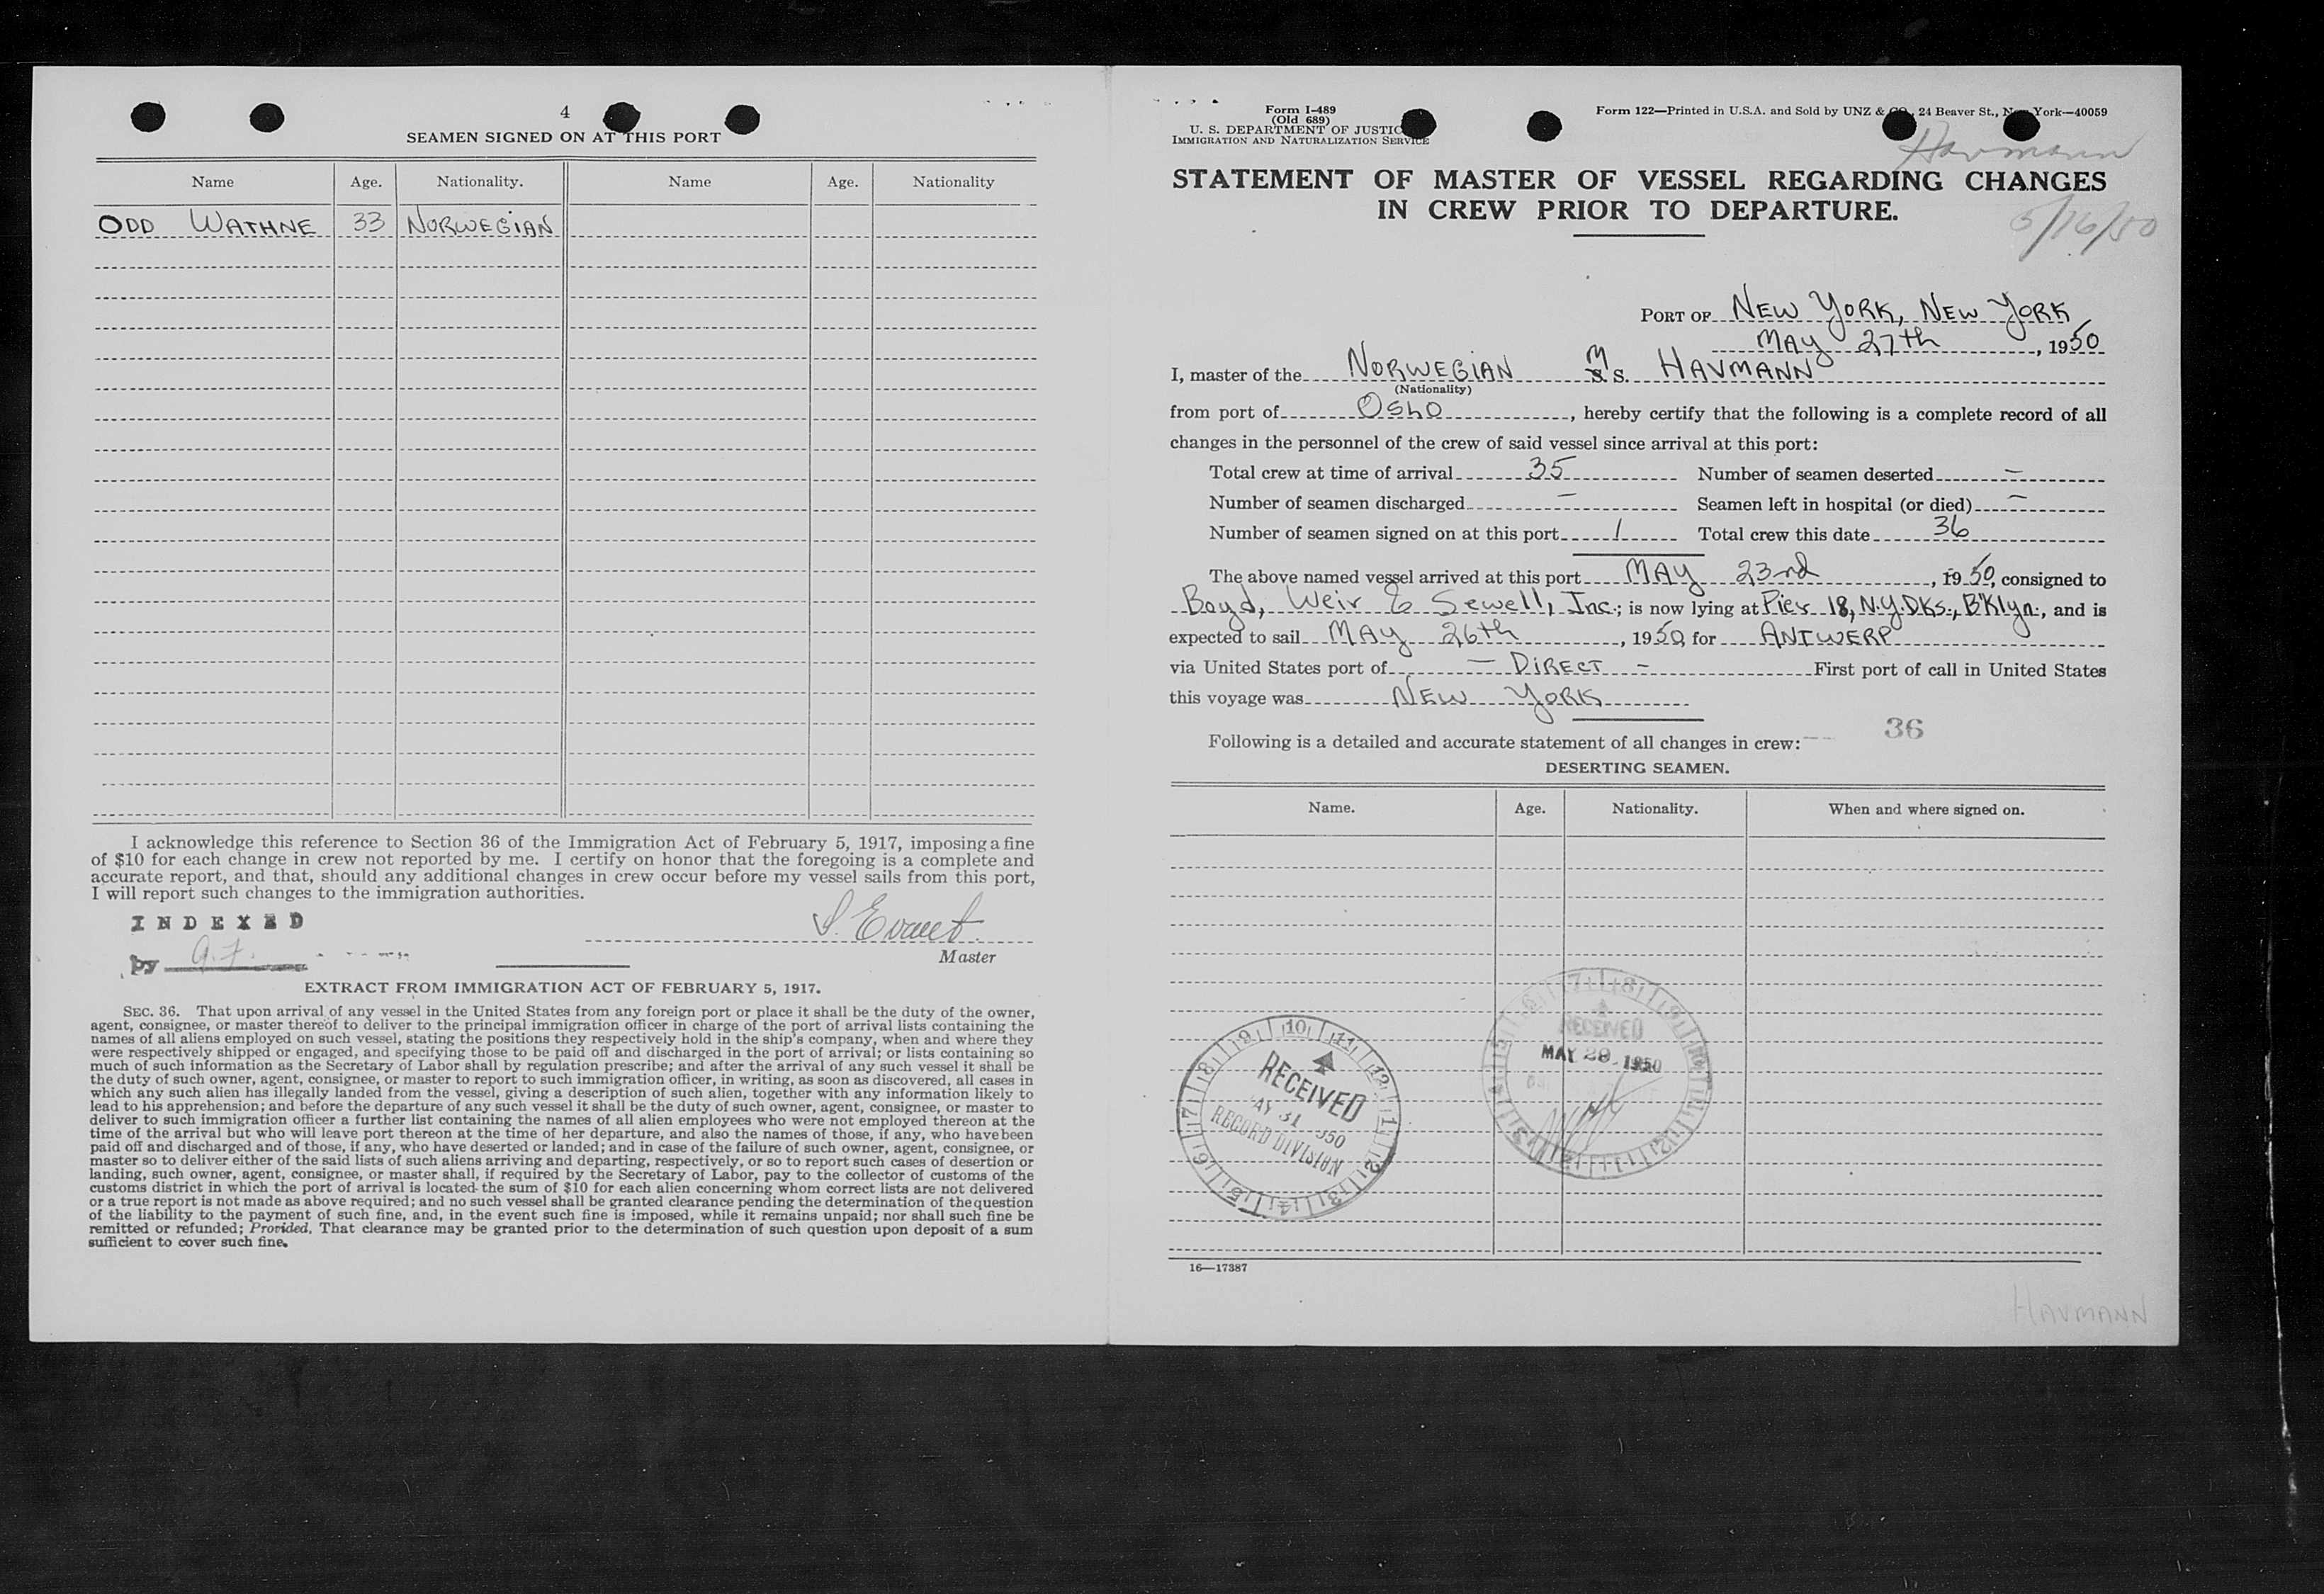 4
SEAMEN SIGNED ON AT THIS PORT
Name Age. Nationality. Name Age. Nationality
ODD WATHNE 33 NORWEGIAN
I acknowledge this reference to Section 36 of the Immigration Act of February 5, 1917, imposing a fine
of $10 for each change in crew not reported by me. I certify on honor that the foregoing is a complete and
accurate report, and that, should any additional changes in crew occur before my vessel sails from this port,
I will report such changes to the immigration authorities.
INDEXED
by
Master
EXTRACT FROM IMMIGRATION ACT OF FEBRUARY 5, 1917.
SEC. 36. That upon arrival of any vessel in the United States from any foreign port or place it shall be the duty of the owner,
agent, consignee, or master thereof to deliver to the principal immigration officer in charge of the port of arrival lists containing the
names of all aliens employed on such vessel, stating the positions they respectively hold in the ship's company, when and where they
were respectively shipped or engaged, and specifying those to be paid off and discharged in the port of arrival; or lists containing so
much of such information as the Secretary of Labor shall by regulation prescribe; and after the arrival of any such vessel it shall be
the duty of such owner, agent, consignee, or master to report to such immigration officer, in writing, as soon as discovered, all cases in
which any such alien has illegally landed from the vessel, giving a description of such alien, together with any information likely to
lead to his apprehension; and before the departure of any such vessel it shall be the duty of such owner, agent, consignee, or master to
deliver to such immigration officer a further list containing the names of all alien employees who were not employed thereon at the
time of the arrival but who will leave port thereon at the time of her departure, and also the names of those, if any, who have been
paid off and discharged and of those, if any, who have deserted or landed; and in case of the failure of such owner, agent, consignee, or
master so to deliver either of the said lists of such aliens arriving and departing, respectively, or so to report such cases of desertion or
landing, such owner, agent, consignee, or master shall, if required by the Secretary of Labor, pay to the collector of customs of the
customs district in which the port of arrival is located the sum of $10 for each alien concerning whom correct lists are not delivered
or a true report is not made as above required; and no such vessel shall be granted clearance pending the determination of the question
of the liability to the payment of such fine, and, in the event such fine is imposed, while it remains unpaid; nor shall such fine be
remitted or refunded; Provided, That clearance may be granted prior to the determination of such question upon deposit of a sum
sufficient to cover such fine.
Form I-489
(Old 689)
U. S. DEPARTMENT OF JUSTIC
IMMIGRATION AND NATURALIZATION SERVICE
Form 122—Printed in U.S.A. and Sold by UNZ & CO., 24 Beaver St., New York—40059
Havmann
STATEMENT OF MASTER OF VESSEL REGARDING CHANGES
IN CREW PRIOR TO DEPARTURE.
5/16/50
PORT OF NEW YORK, NEW YORK
MAY 27th, 1950
I, master of the NORWEGIAN M S. HAVMANN
(Nationality)
from port of OSLO, hereby certify that the following is a complete record of all
changes in the personnel of the crew of said vessel since arrival at this port:
Total crew at time of arrival 35 Number of seamen deserted —
Number of seamen discharged — Seamen left in hospital (or died) —
Number of seamen signed on at this port 1 Total crew this date 36
The above named vessel arrived at this port MAY 23rd, 1950, consigned to
Boyd, Weir & Sewell, Inc.; is now lying at Pier 18, N.Y.DKs., B'Klyn., and is
expected to sail MAY 26th, 1950, for ANTWERP
via United States port of — DIRECT — First port of call in United States
this voyage was NEW YORK
Following is a detailed and accurate statement of all changes in crew:
36
DESERTING SEAMEN.
Name. Age. Nationality. When and where signed on.
RECEIVED
MAY 29 1950
RECEIVED
AY 31 950
RECORD DIVISION
16—17387
HAVMANN